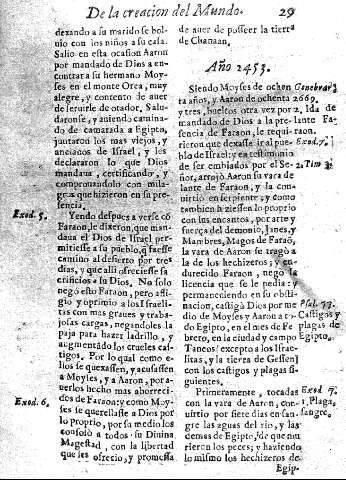 De la creacion del Mundo. 29
dexando a su marido se bol-
uio con los niños a su casa.
Salio en esta ocasion Aaron
por mandado de Dios a en-
contrar a su hermano Moy-
ses en el monte Orea, muy
alegre, y contento de auer
de seruirle de orador, Salu-
daronse, y auiendo camina-
do de camarada a Egipto,
juntaron los mas viejos, y
ancianos de Israel, y les
declararon lo que Dios
mandaua, certificando, y
comprouandolo con mila-
gros que hizieron en su pre-
sencia.
Exod. 5.
Yendo despues a verse cõ
Faraon, le dixeron, que man-
daua el Dios de Israel per-
mitiesse a su pueblo, q̃ fuesse
camino al desierto por tres
dias, y que alli ofreciesse sa
crificios a su Dios. No solo
negó esto Faraon, pero afli-
gio y oprimio a los Israeli-
tas con mas graues y traba-
josas cargas, negandoles la
paja para hazer ladrillo, y
augmentãdo los crueles cas-
tigos. Por lo qual como e-
llos se quexassen, y acusassen
a Moyses, y a Aaron, por a-
uerlos hecho mas aborreci-
Exod. 6.
dos de Faraon: y como Moy-
ses se querellasse a Dios por
lo proprio, por su medio los
consolò a todos su Diuina
Magestad, con la libertad
que les ofrecio, y promessa
de auer de posseer la tierra
de Chanaan.
Año 2453.
Siendo Moyses de ochen
ta años, y Aaron de ochenta
y tres, bueltos otra vez por
mandado de Dios a la pre-
sencia de Faraon, le requi-
rieron que dexasse ir al pue-
blo de Israel: y en testimonio
de ser embiados por el Se-
ñor, arrojò Aaron su vara de
lante de Faraon, y la con-
uirtio en serpiente, y como
tambien hiziessen lo proprio
con sus encantos, por arte y
fuerça del demonio, Janes, y
Mambres, Magos de Faraõ,
la vara de Aaron se tragò a
la de los hechizeros; y en-
durecido Faraon, negò la
licencia que se le pedia: y
permaneciendo en su obsti-
nacion, castigò Dios por me
dio de Moyses y Aaron a to-
do Egipto, en el mes de Fe
brero, en la ciudad y campo
Taneos (excepto a los Israe-
litas, y la tierra de Gessen)
con los castigos y plagas si-
guientes.
Primeramente, tocadas
con la vara de Aaron, con-
uirtio por siete dias en san-
gre las aguas del rio, y las
demas de Egipto, de que mu
rieron los peces; y haziendo
lo mismo los hechizeros de
Egip-
Genebrar
2669.
Exod. 7.
2. Tim 3.
Psal. 77.
Castigos y
plagas de
Egipto.
Exod 7.
1. Plaga,
sangre.